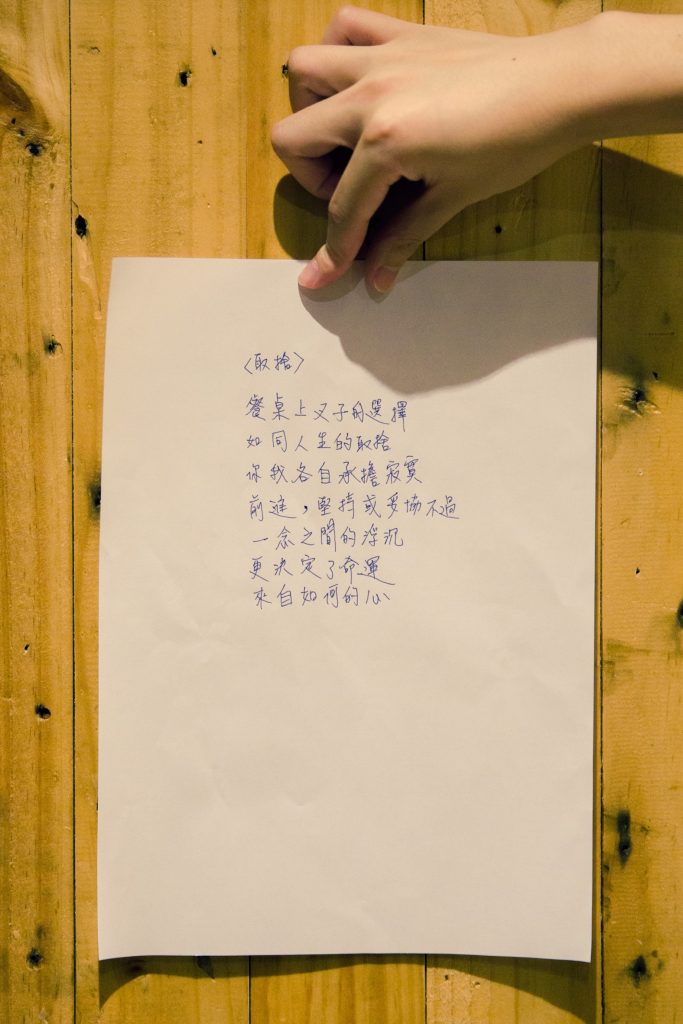 〈取捨〉
餐桌上叉子的選擇
如同人生的取捨
你我各自承擔寂寞
前進，堅持或妥協不過
一念之間的浮沉
更決定了命運
來自如何的心